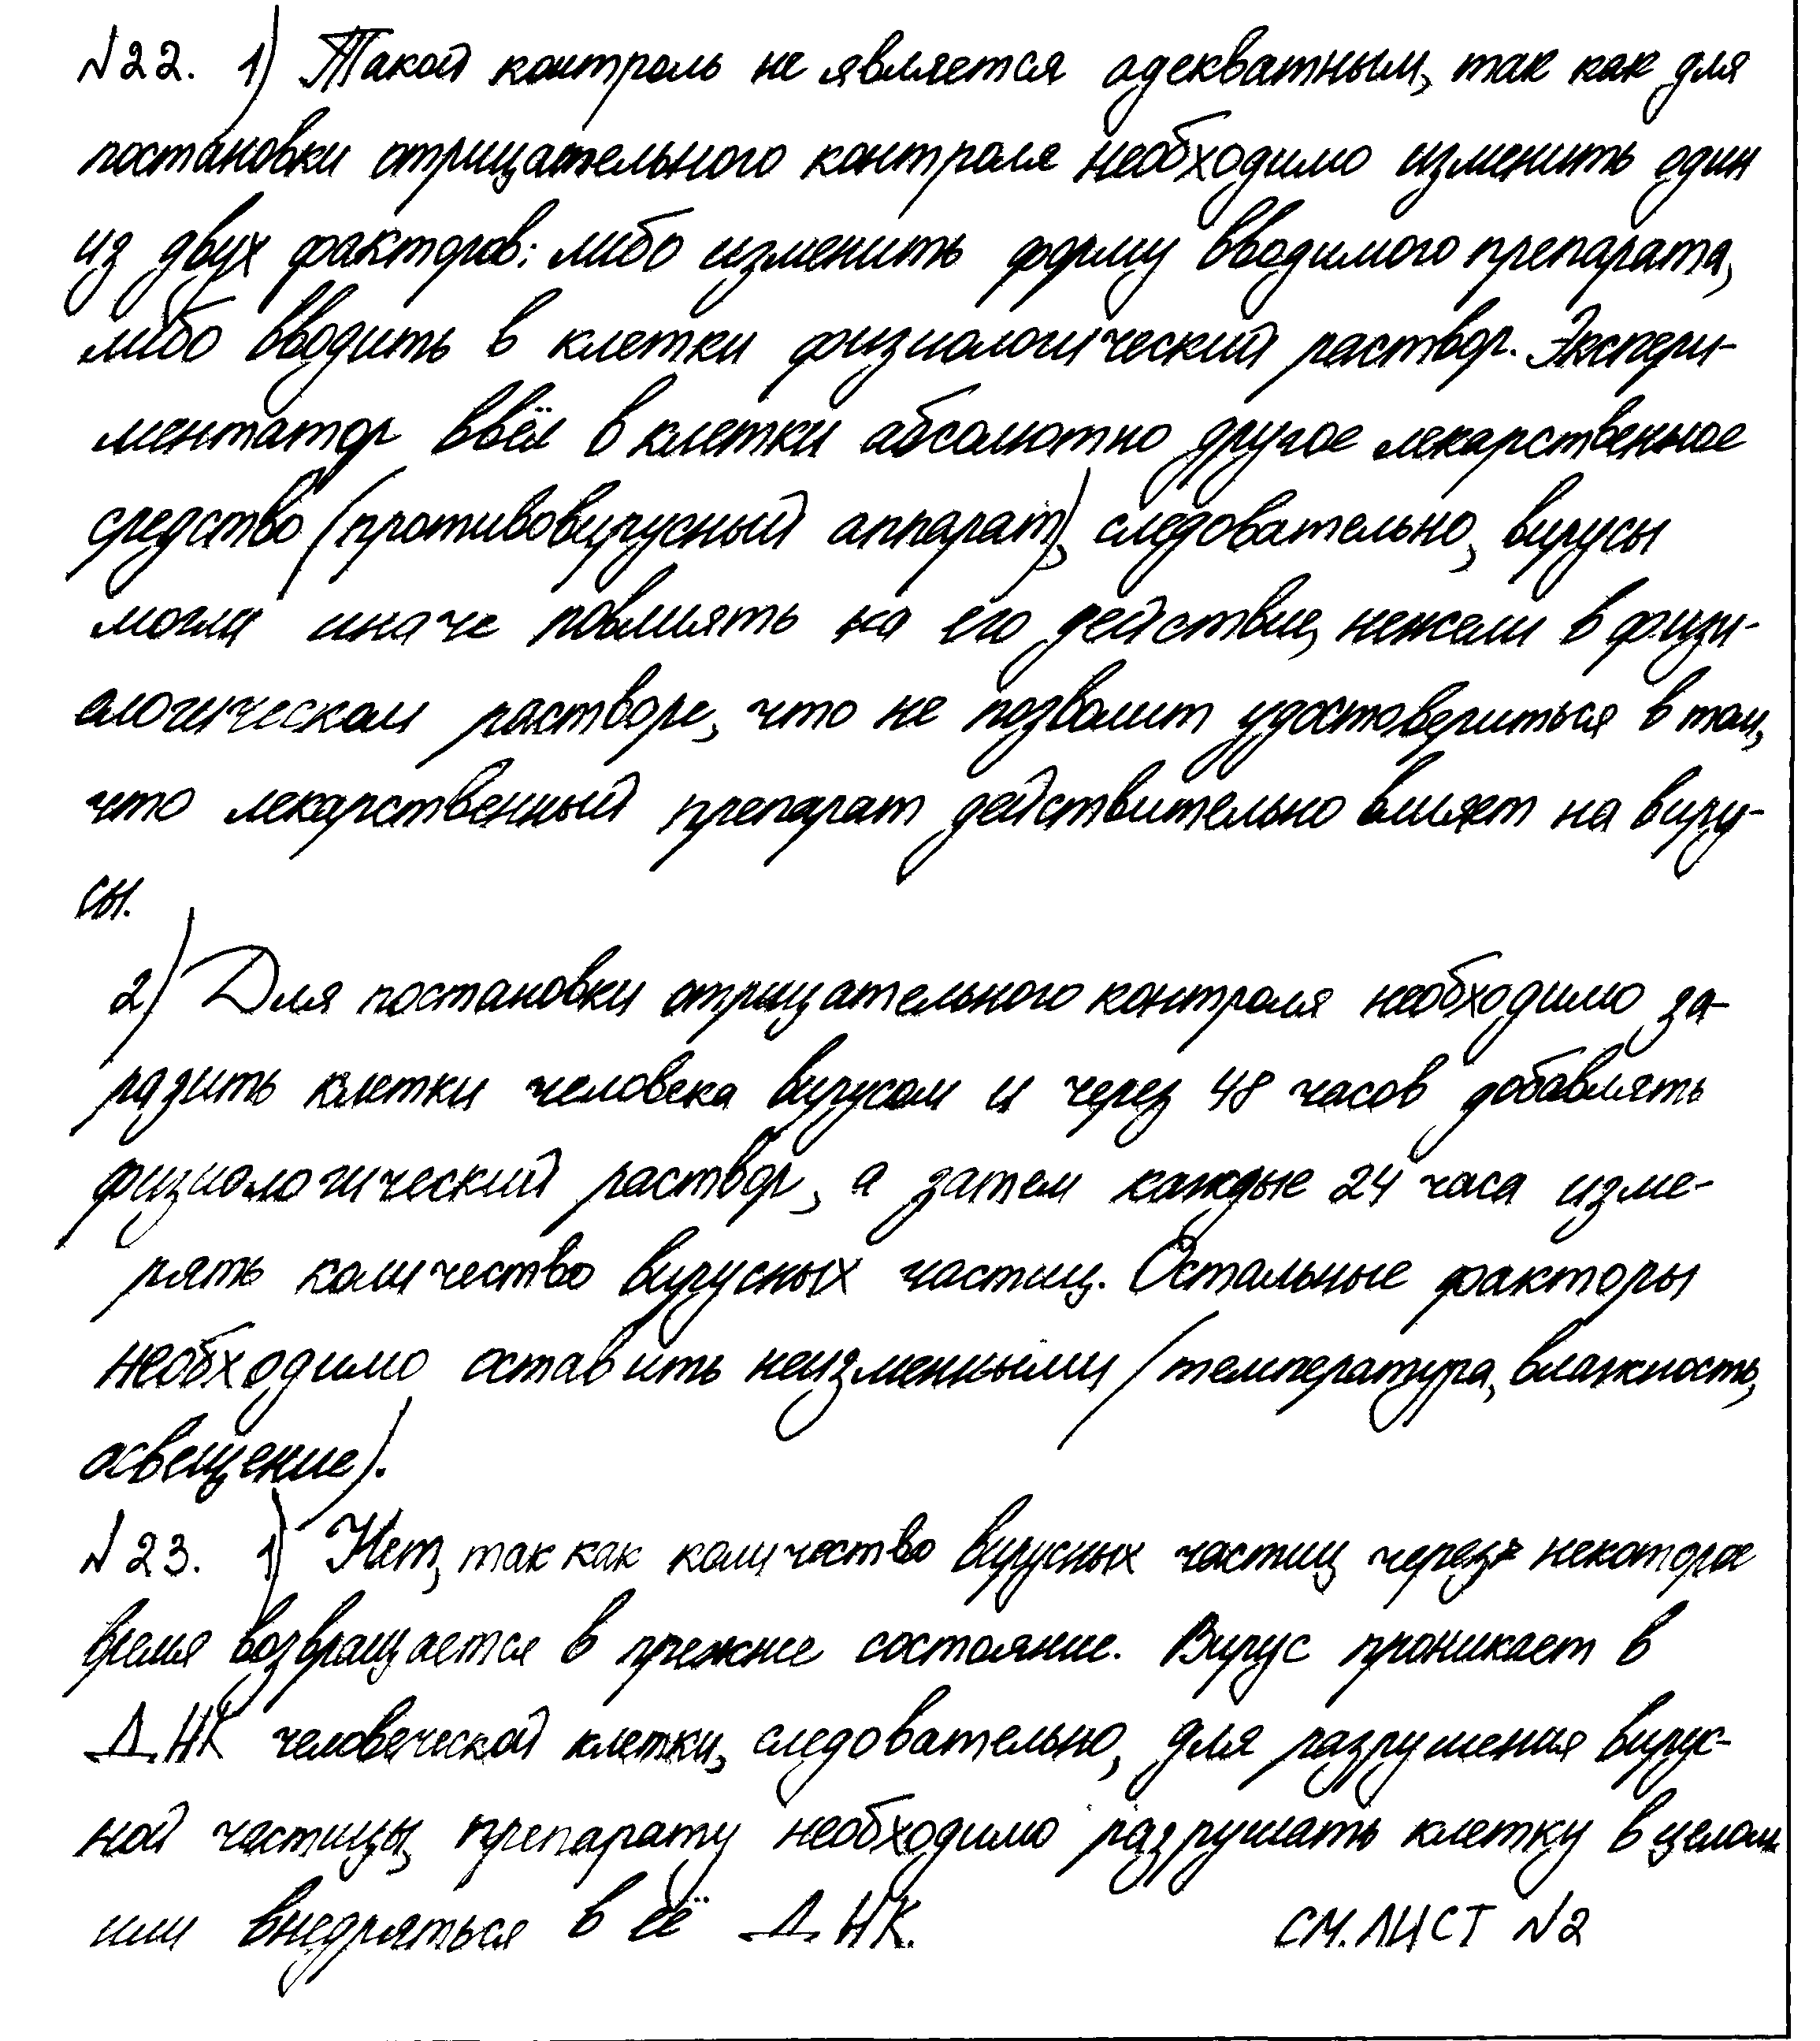 №22. 1) Такой контроль не является адекватным, так как для
постановки отрицательного контроля необходимо изменить один
из двух факторов: либо изменить форму вводимого препарата,
либо вводить в клетки физиологический раствор. Экспери-
ментатор ввёл в клетки абсолютно другое лекарственное
средство (противовирусный аппарат), следовательно, вирусы
могли иначе повлиять на его действие, нежели в физи-
ологическом растворе, что не позволит удостовериться в том,
что лекарственный препарат действительно влияет на виру-
сы.
2) Для постановки отрицательного контроля необходимо за-
разить клетки человека вирусом и через 48 часов добавлять
физиологический раствор, а затем каждые 24 часа изме-
рять количество вирусных частиц. Остальные факторы
необходимо оставить неизменными (температура, влажность,
освещение).
№23. 1) Нет, так как количество вирусных частиц через некоторое
время возвращается в прежнее состояние. Вирус проникает в
ДНК человеческой клетки, следовательно, для разрушения вирус-
ной частицы, препарату необходимо разрушать клетку в целом
или внедряться в её ДНК.
СМ. ЛИСТ №2